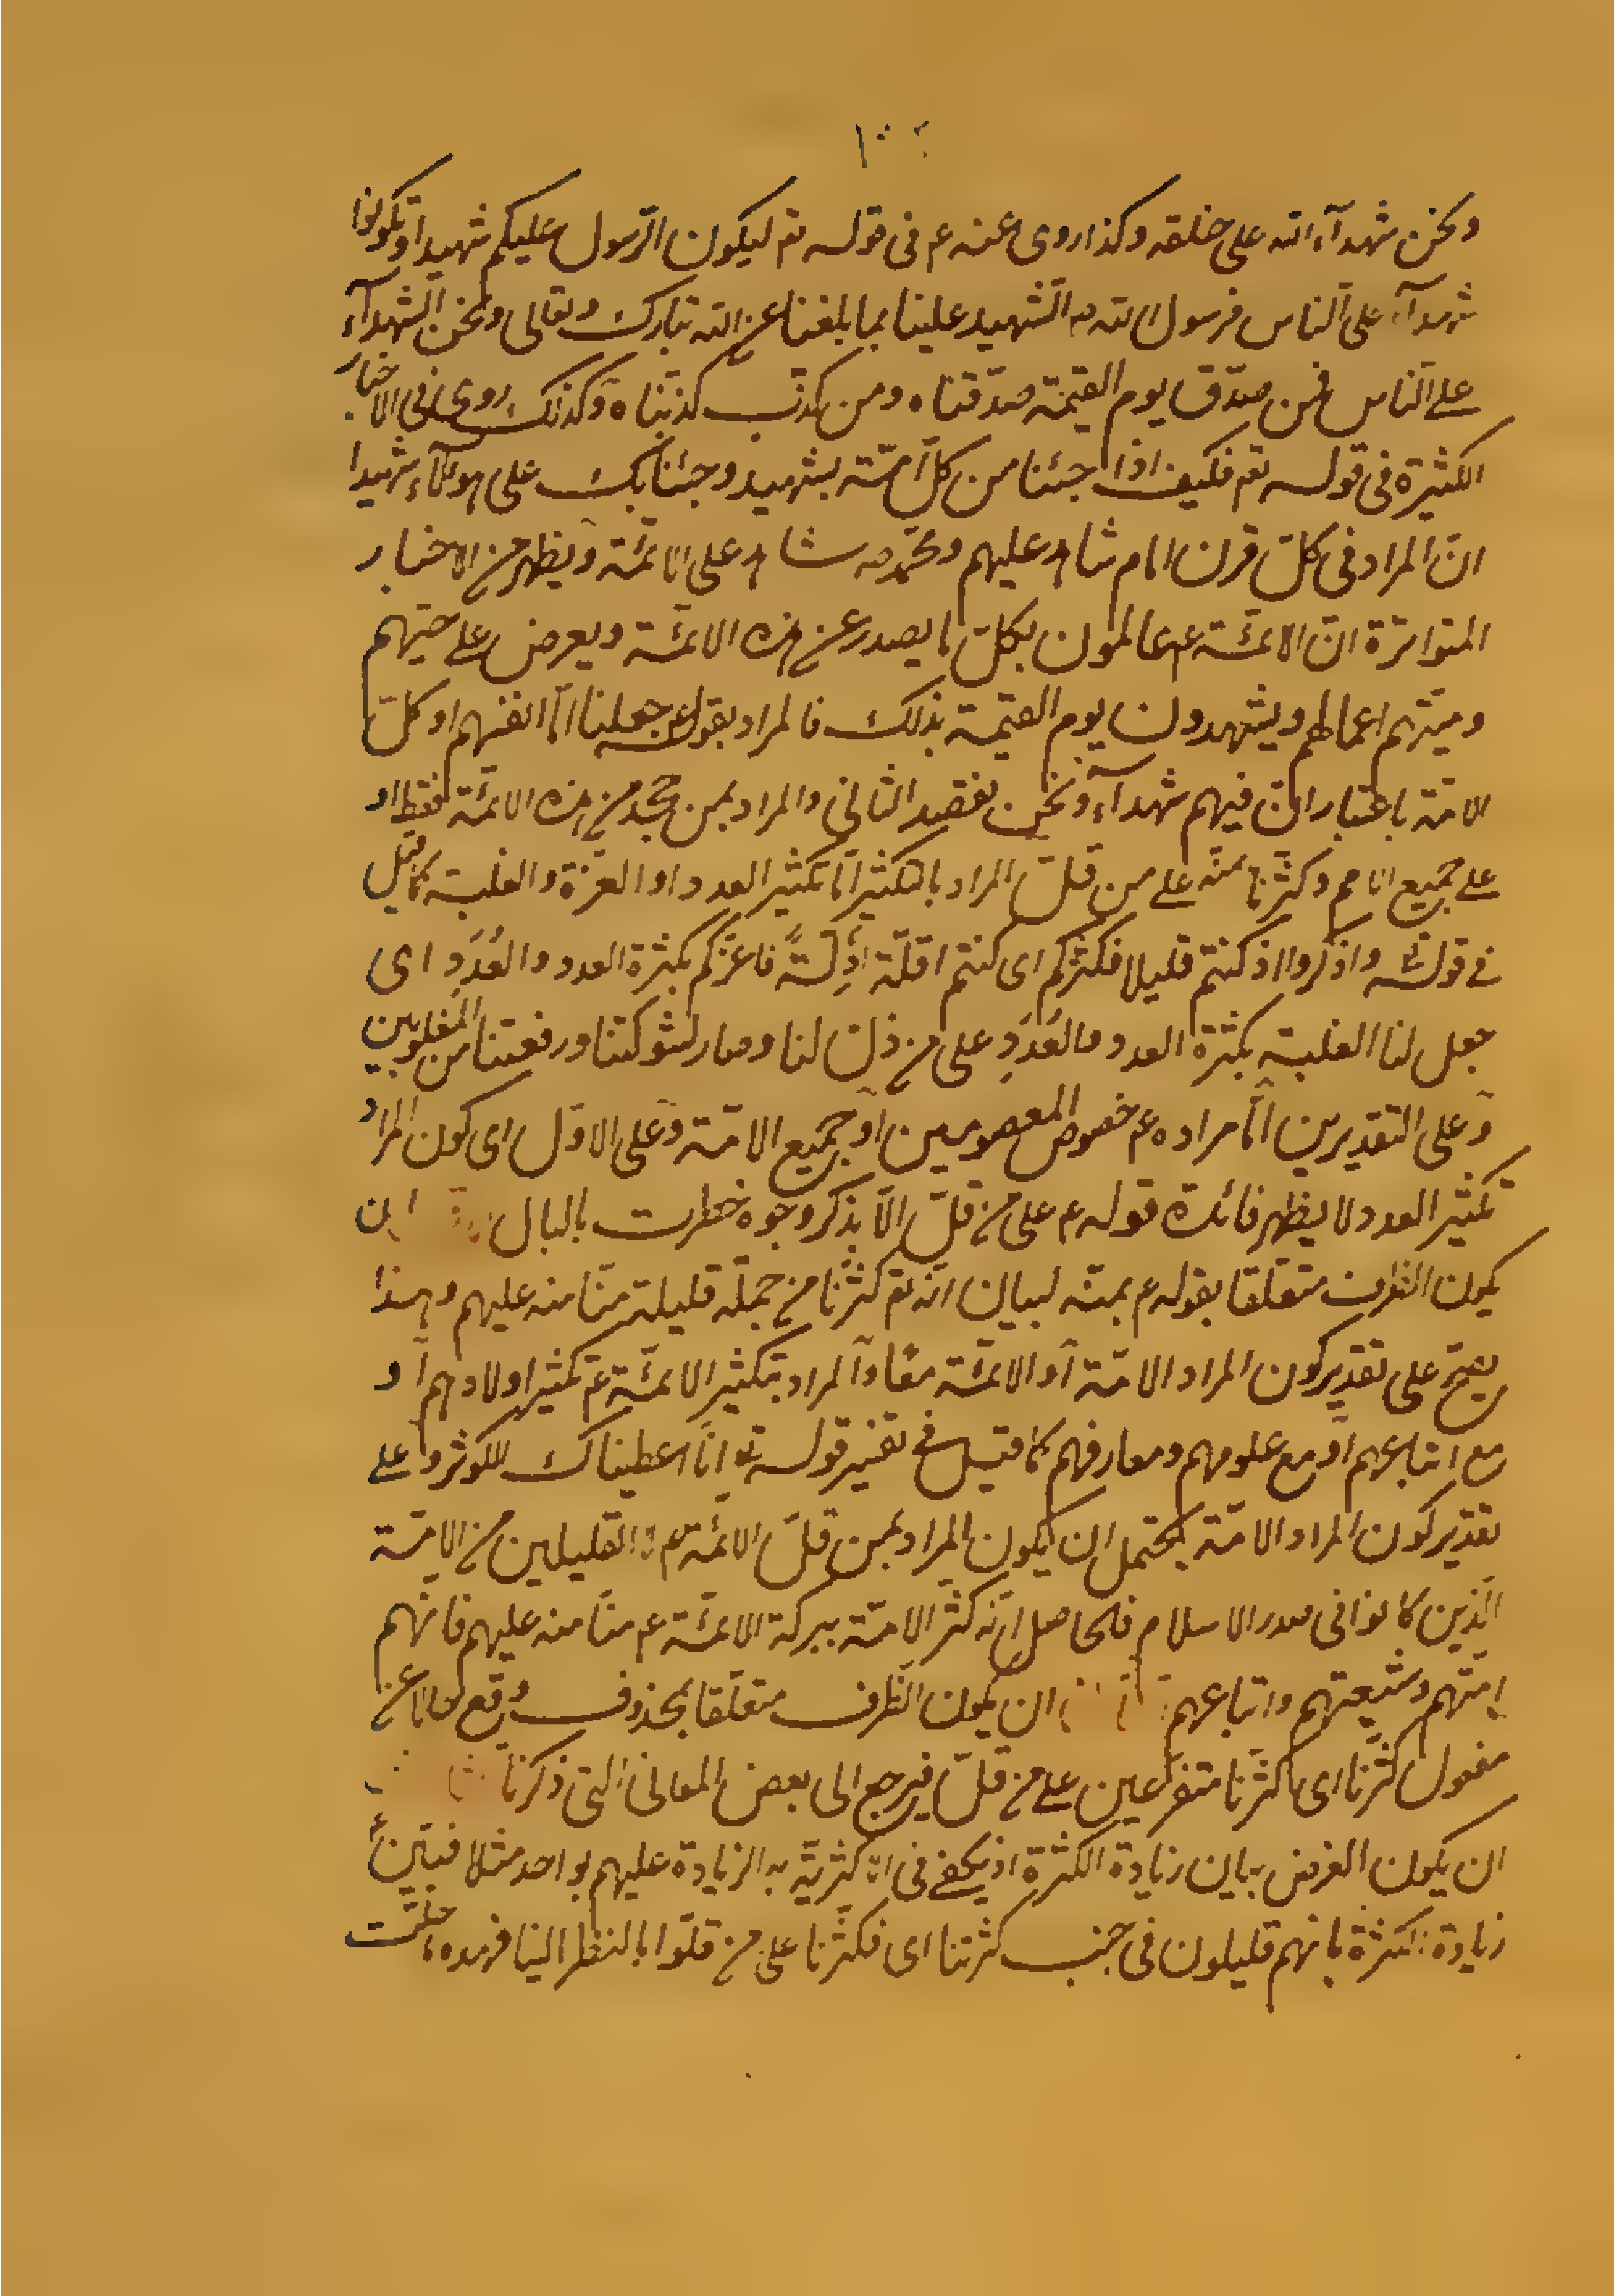 ونحن شهدآء الله على خلقه وكذا روى عنه ع فى قوله تع ليكون الرّسول عليكم شهيدا وتكونوا
شهدآء على النّاس فرسول الله ص الشّهيد علينا بما بلغنا عن الله تبارك وتعالى ونحن الشّهدآء
على النّاس فمن صدّق يوم القيمة صدّقناه ومن كذّب كذّبناه وكذلك روى فى الاخبار
الكثيرة فى قوله تع فكيف اذا جئنا من كلّ امّة بشهيد وجئنا بك على هولآء شهيدا
انّ المراد فى كلّ قرن امام شاهد عليهم ومحمّد ص شاهد على الائمّة ويظهر من الاخبار
المتواترة انّ الائمّة ع عالمون بكلّ ما يصدر عن هذه الامّة ويعرض على حيّهم
وميّتهم اعمالهم ويشهدون يوم القيمة بذلك فالمراد بقوله ع جعلنا امّا انفسهم او كلّ
الامّة باعتبار انّ فيهم شهدآء ونحن نقصد الثانى والمراد بمن جحد من هذه الامّة فقط او
على جميع الامم وكثّرنا بمنّه على من قلّ المراد بالتكثير امّا تكثير العدد او العزّة والغلبة كما قيل
فى قوله تع واذكروا اذ كنتم قليلا فكثّركم اى كنتم اقلّة اذلّةً فاعزّكم بكثرة العدد والعُدَدِ اى
جعل لنا الغلبة بكثرة العدد والعُدَدِ على من ذلّ لنا وصار لشوكتنا ورفعتنا من المغلوبين
وعلى التقديرين امّا مراده ع خصوص المعصومين او جميع الامّة وعلى الاوّل اى كون المراد
تكثير العدد لا يظهر فائدة قوله ع على من قلّ الّا بذكر وجوه خطرت بالبال ان
يكون الظرف متعلّقا بقوله ع بمنّه لبيان انّه تع كثّرنا من جملة قليلة منّا منه عليهم وهذا
يصحّ على تقدير كون المراد الامّة او الائمّة معًا والمراد بتكثير الائمّة ع تكثير اولادهم او
مع اتباعهم او مع علومهم ومعارفهم كما قيل فى تفسير قوله تع انّا اعطيناك الكوثر وعلى
تقدير كون المراد الامّة يحتمل ان يكون المراد بمن قلّ الائمّة ع او القليلين من الامّة
الّذين كانوا فى صدر الاسلام فالحاصل انّه كثّر الامّة ببركة الائمّة ع منّا منه عليهم فانّهم
امّتهم وشيعتهم واتباعهم ان يكون الظرف متعلّقا بمحذوف وقع حالا عن
مفعول كثّرنا اى كثّرنا متفرّعين على من قلّ فيرجع الى بعض المعانى التى ذكرنا
ان يكون الغرض بيان زيادة الكثرة اذ يكفى فى اكثريّة الزيادة عليهم بواحد مثلا فبيّن
زيادة الكثرة بانهم قليلون فى جنب كثرتنا اى فكثّرنا على من قلّوا بالنظر الينا فهذه